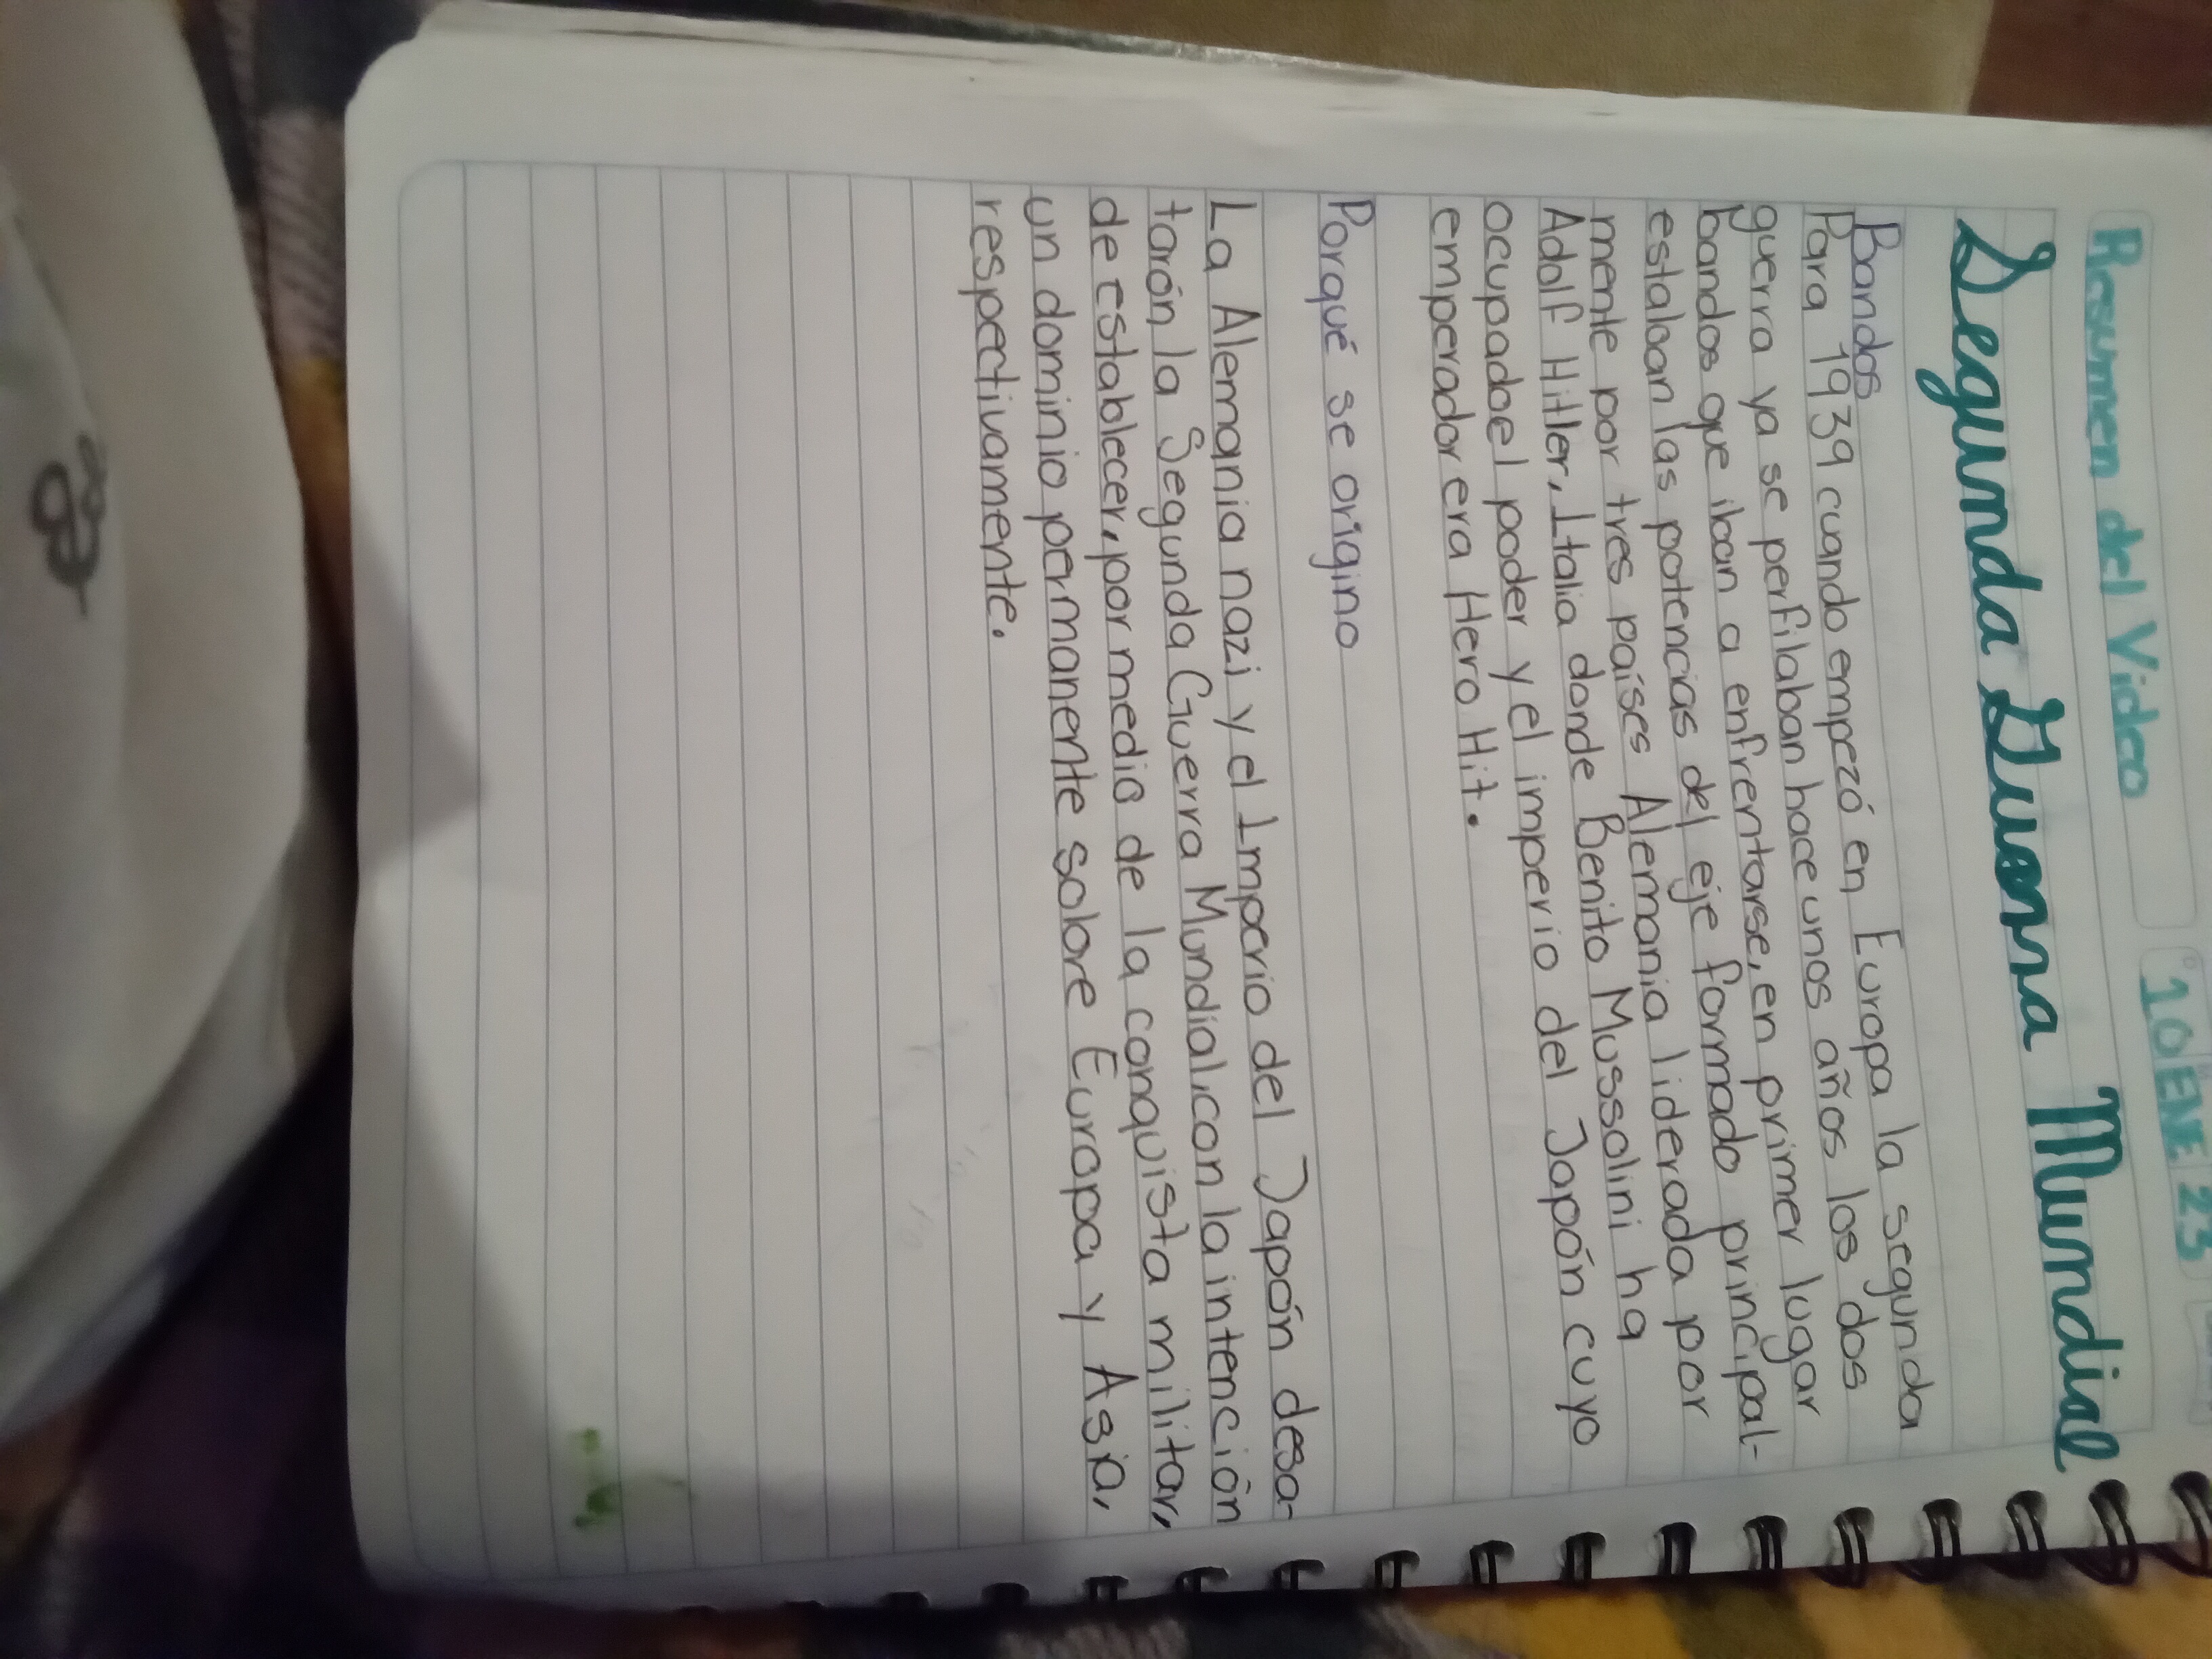 Resumen del Video
10 ENE 23
Segunda Guerra Mundial
Bandos
Para 1939 cuando empezó en Europa la segunda
guerra ya se perfilaban hace unos años los dos
bandos que iban a enfrentarse, en primer lugar
estaban las potencias del eje formado principal-
mente por tres países Alemania liderada por
Adolf Hitler, Italia donde Benito Mussolini ha
ocupado el poder y el imperio del Japón cuyo
emperador era Hero Hit.
Porqué se origino
La Alemania nazi y el Imperio del Japón desa-
tarón la Segunda Guerra Mundial, con la intención
de establecer, por medio de la conquista militar,
un dominio permanente sobre Europa y Asia,
respectivamente.